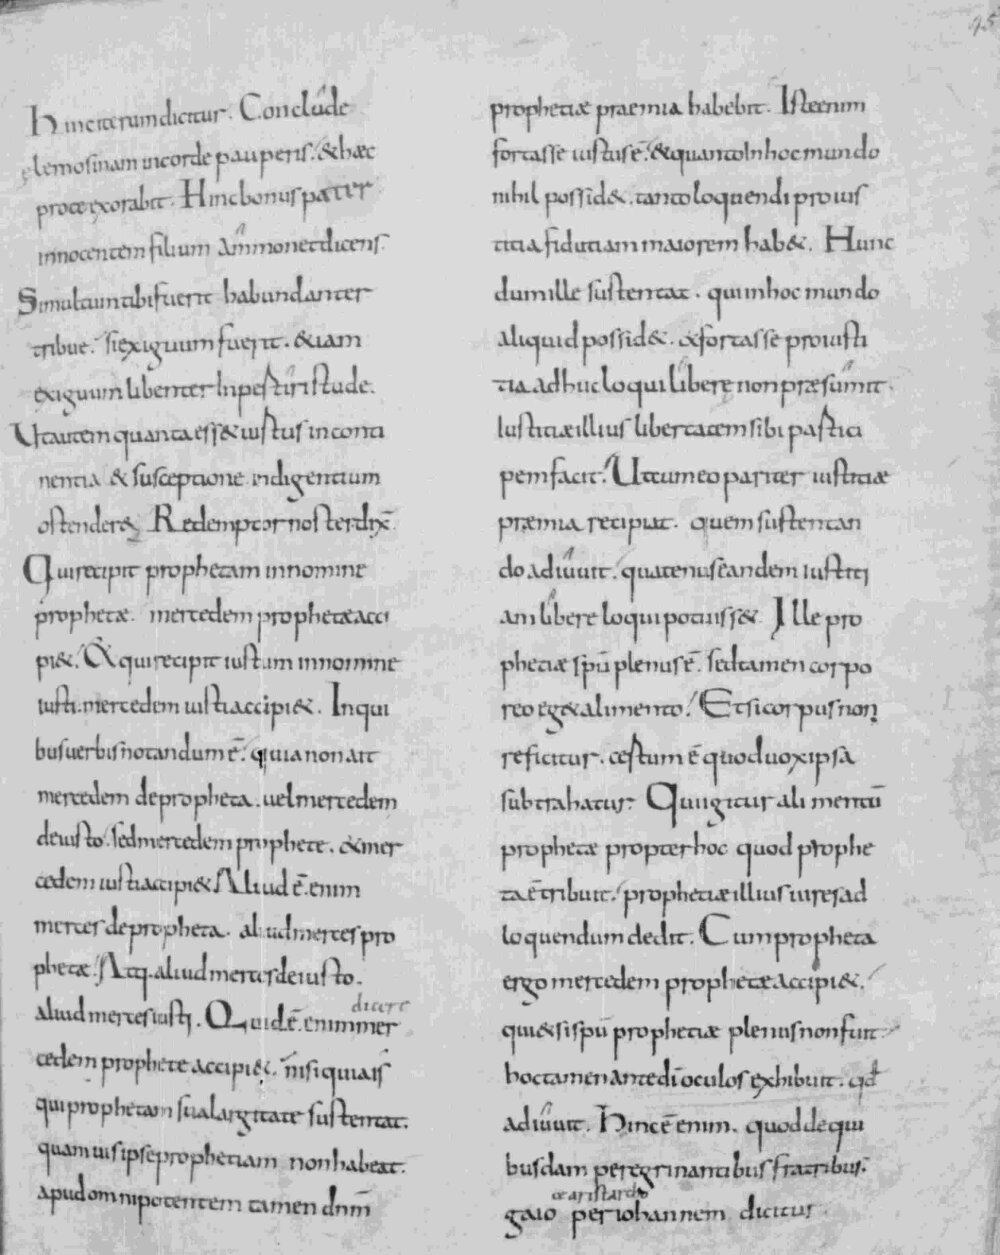 95
Hinc iterum dicitur. Conclude
elemosinam in corde pauperis. & hæc
pro te exorabit. Hinc bonus pater
innocentem filium ammonet dicens.
Si multum tibi fuerit habundanter
tribue. si exiguum fuerit. & iam
exiguum libenter Inpertiri stude.
Ut autem quanta ess& iustus in conti
nentia & susceptione indigentium
ostender& Redemptor noster dix̄.
Qui recipit prophetam in nomine
prophetæ. mercedem prophetæ acci
pi&. & qui recipit iustum in nomine
iusti. mercedem iusti accipi&. In qui
bus uerbis notandum ē. quia non ait
mercedem de propheta. uel mercedem
de iusto. sed mercedem prophete. & mer
cedem iusti accipi& Aliud ē. enim
merces de propheta. aliud merces pro
phetæ. Atq. aliud merces de iusto.
aliud merces iusti. Quid ē. enim mer
dicere
cedem prophete accipi&. nisi quia is
qui prophetam sua largitate sustentat.
quamuis ipse prophetiam non habeat.
apud omnipotentem tamen dnm̄
prophetiæ praemia habebit. Iste enim
fortasse iustus ē. & quanto In hoc mundo
nihil possid&. tanto loquendi pro ius
titia fidutiam maiorem hab&. Hunc
dum ille sustentat. qui in hoc mundo
aliquid possid&. & fortasse pro iusti
tia adhuc loqui libere non præsumit.
Iustitiæ illius libertatem sibi partici
pem facit. Ut cum eo pariter iustitiæ
præmia recipiat. quem sustentan
do adiuuit. quatenus eandem iustiti
am libere loqui potuiss&. Ille pro
phetiæ spū plenus ē. sed tamen corpo
reo eg& alimento. Et si corpus non
reficitur. certum ē quod uox ipsa
subtrahatur. Qui igitur alimentū
prophetæ propter hoc quod prophe
ta ē tribuit. prophetiæ illius uires ad
loquendum dedit. Cum propheta
ergo mercedem prophetæ accipi&.
qui & si spū prophetiæ plenus non fuit
hoc tamen ante dī oculos exhibuit. qd
adiuuit. Hinc ē enim. quod de qui
busdam peregrinantibus fratribus.
& aristarcho
gaio per iohannem dicitur